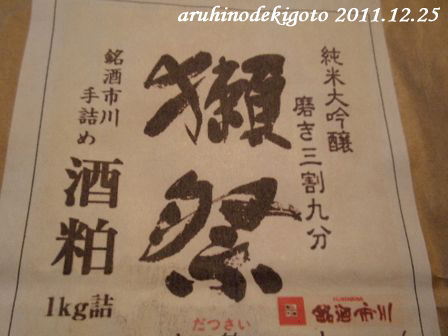 aruhinodekigoto 2011.12.25
純米大吟醸
磨き三割九分
獺祭
だっさい
銘酒市川
手詰め
酒粕
1kg詰
銘酒市川